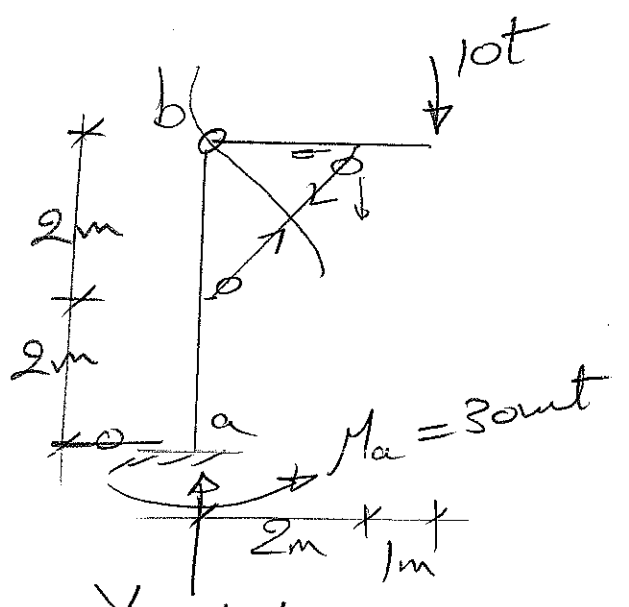 10t
b
2m
2m
a
Ma = 30mt
2m
1m